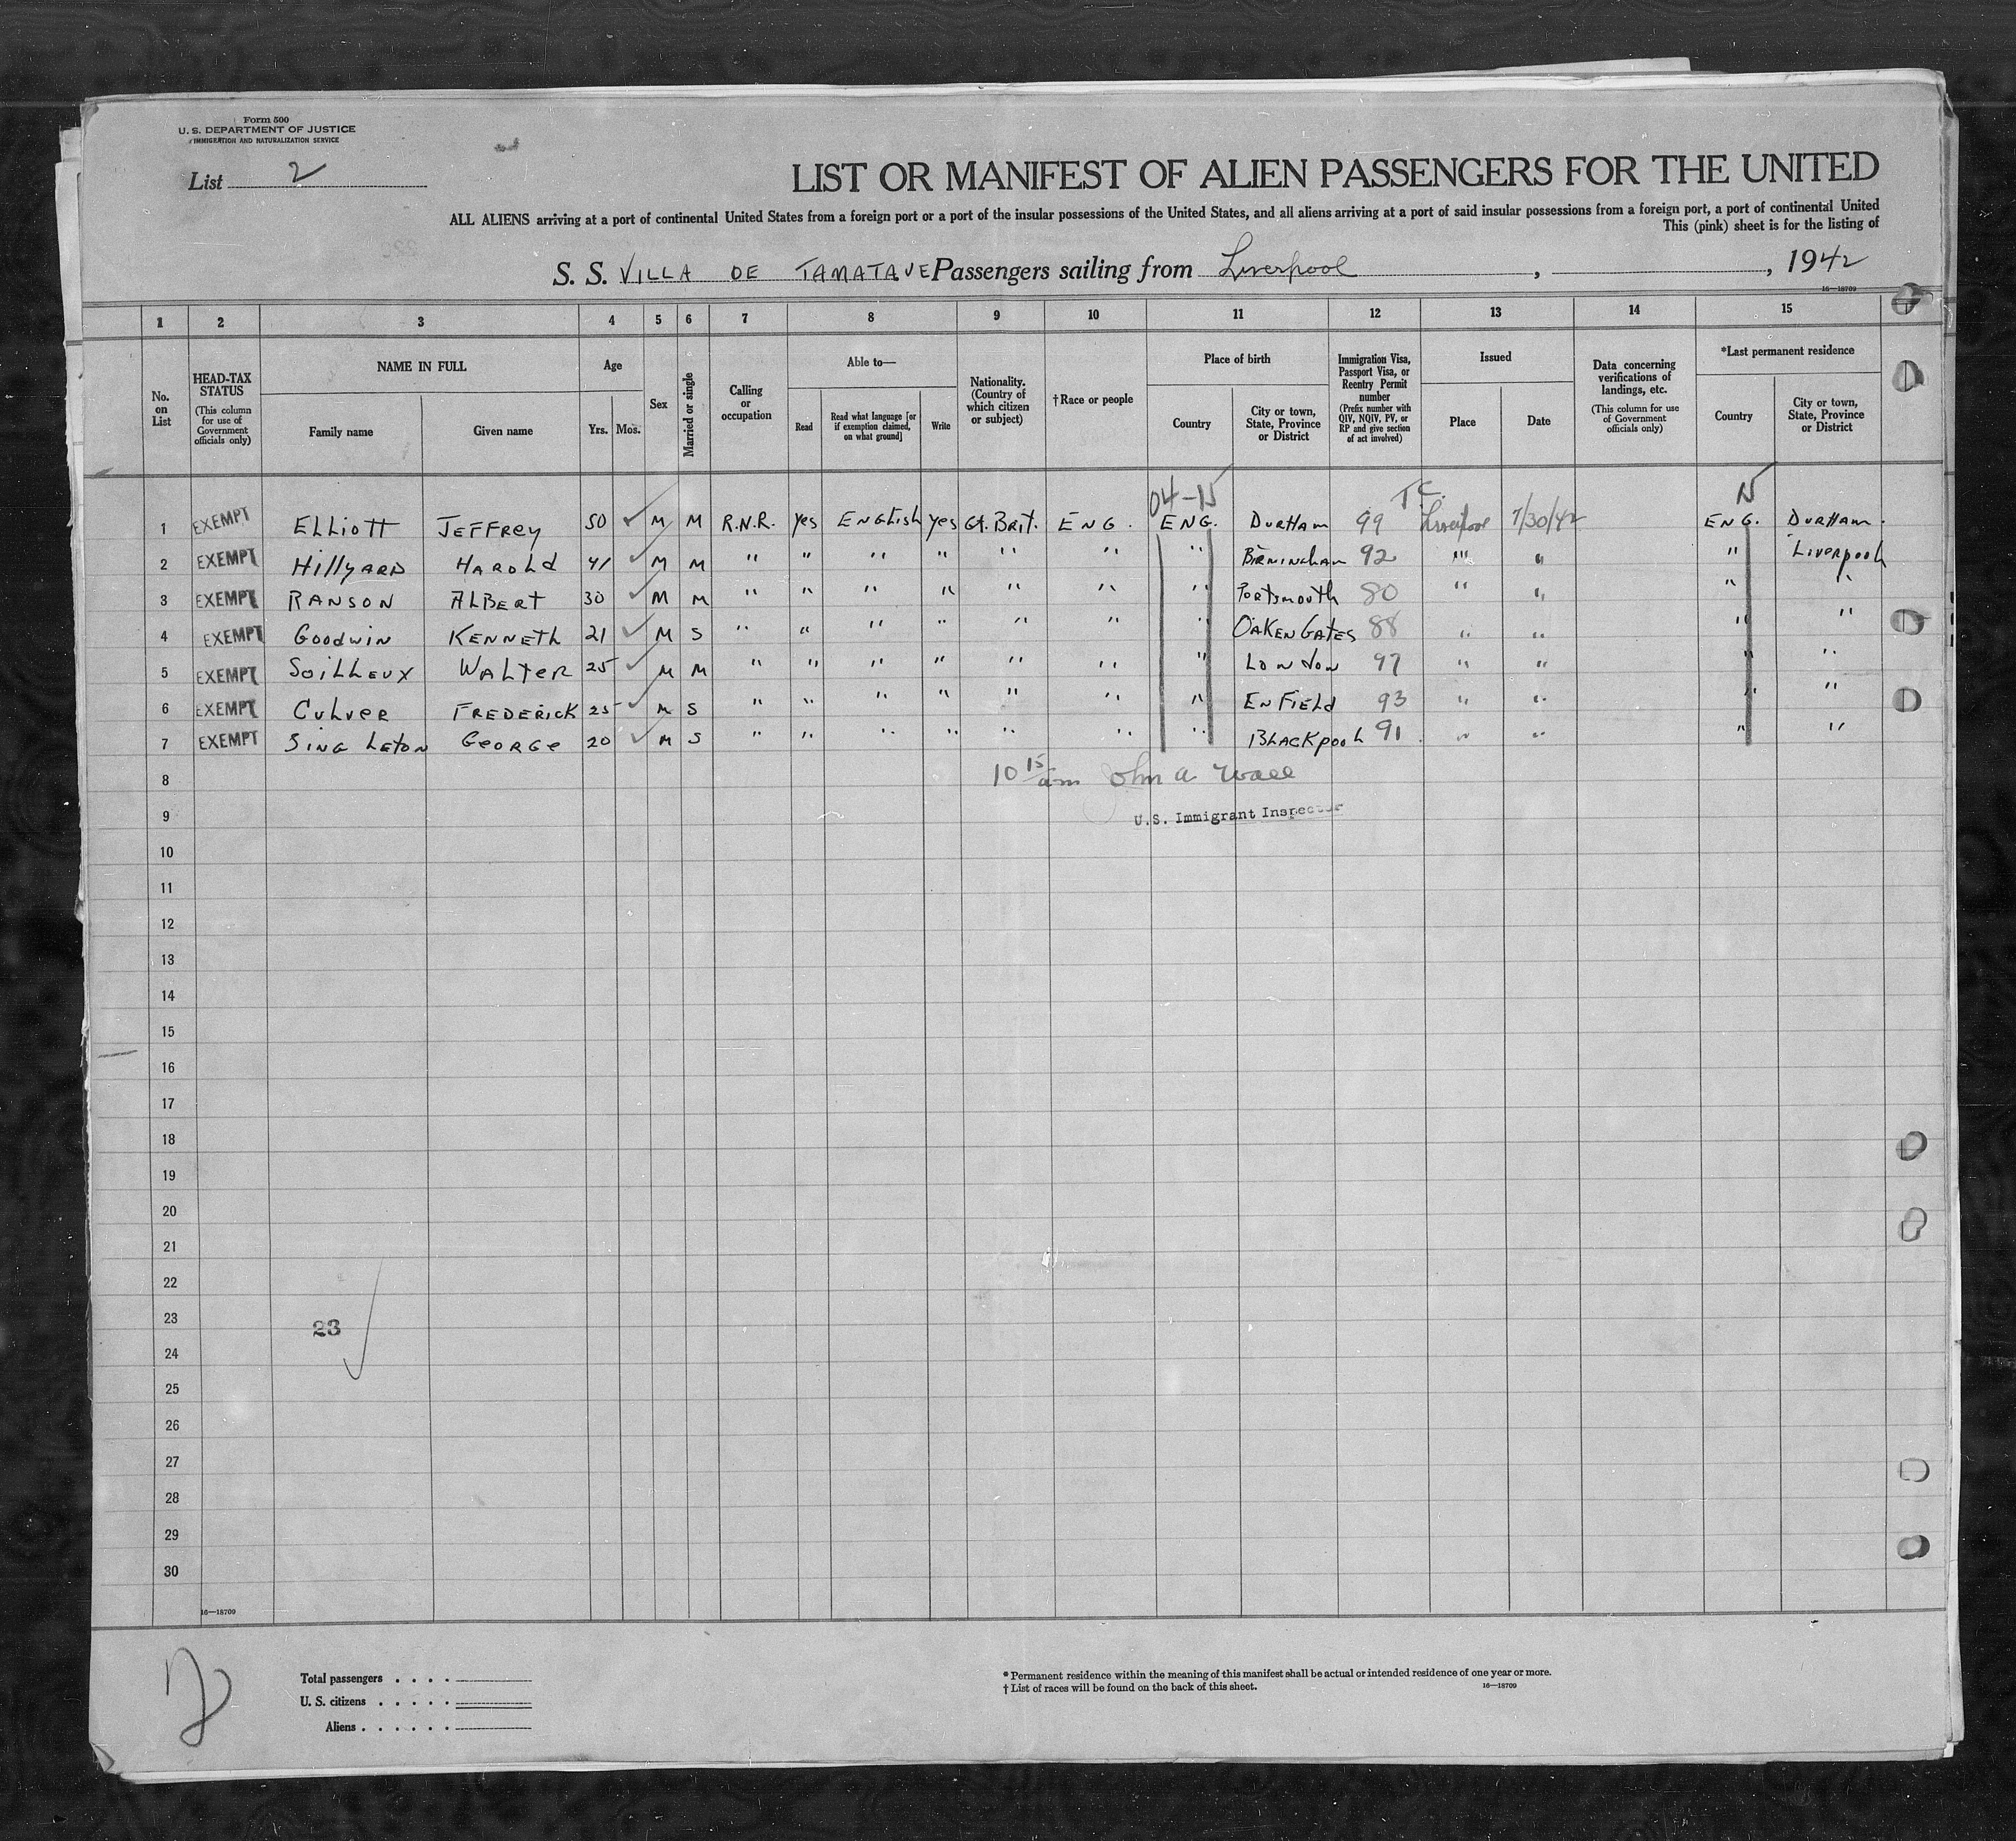 Form 500
U. S. DEPARTMENT OF JUSTICE
IMMIGRATION AND NATURALIZATION SERVICE
List 2
LIST OR MANIFEST OF ALIEN PASSENGERS FOR THE UNITED
ALL ALIENS arriving at a port of continental United States from a foreign port or a port of the insular possessions of the United States, and all aliens arriving at a port of said insular possessions from a foreign port, a port of continental United
This (pink) sheet is for the listing of
S. S. VILLA DE TAMATAVE Passengers sailing from Liverpool , , 1942
16—18709
1 2 3 4 5 6 7 8 9 10 11 12 13 14 15
No. on List
HEAD-TAX STATUS (This column for use of Government officials only)
NAME IN FULL
Family name Given name
Age
Yrs. Mos.
Sex
Married or single
Calling or occupation
Able to—
Read
Read what language [or if exemption claimed, on what ground]
Write
Nationality. (Country of which citizen or subject)
†Race or people
Place of birth
Country
City or town, State, Province or District
Immigration Visa, Passport Visa, or Reentry Permit number (Prefix number with QIV, NQIV, PV, or RP and give section of act involved)
Issued
Place Date
Data concerning verifications of landings, etc. (This column for use of Government officials only)
*Last permanent residence
Country
City or town, State, Province or District
04-15 T.C. 15
1 EXEMPT ELLiott JEFFRey 50 M M R.N.R. yes ENGLish yes Gt. Brit. ENG. ENG. DURHAM 99 Liverpool 7/30/42 ENG. DURHAM.
2 EXEMPT HillyARD HAROLd 41 M M " " " " " " " BIRMINGHAM 92 " " " Liverpool
3 EXEMPT RANSON ALBERT 30 M M " " " " " " " Portsmouth 80 " " " "
4 EXEMPT Goodwin KENNETH 21 M S " " " " " " " OAKEN GATES 88 " " " "
5 EXEMPT SoiLLeux WALTER 25 M M " " " " " " " LONDON 97 " " " "
6 EXEMPT CuLver FREDERICK 25 M S " " " " " " " ENFIELD 93 " " " "
7 EXEMPT SingLeton GEORGe 20 M S " " " " " " " BLACKPOOL 91 " " " "
8 10 15 am John A Wall
9 U.S. Immigrant Inspector
10
11
12
13
14
15
16
17
18
19
20
21
22
23
23
24
25
26
27
28
29
30
16—18709
Total passengers . . . .
U. S. citizens . . . . .
Aliens . . . . . .
* Permanent residence within the meaning of this manifest shall be actual or intended residence of one year or more.
† List of races will be found on the back of this sheet. 16—18709